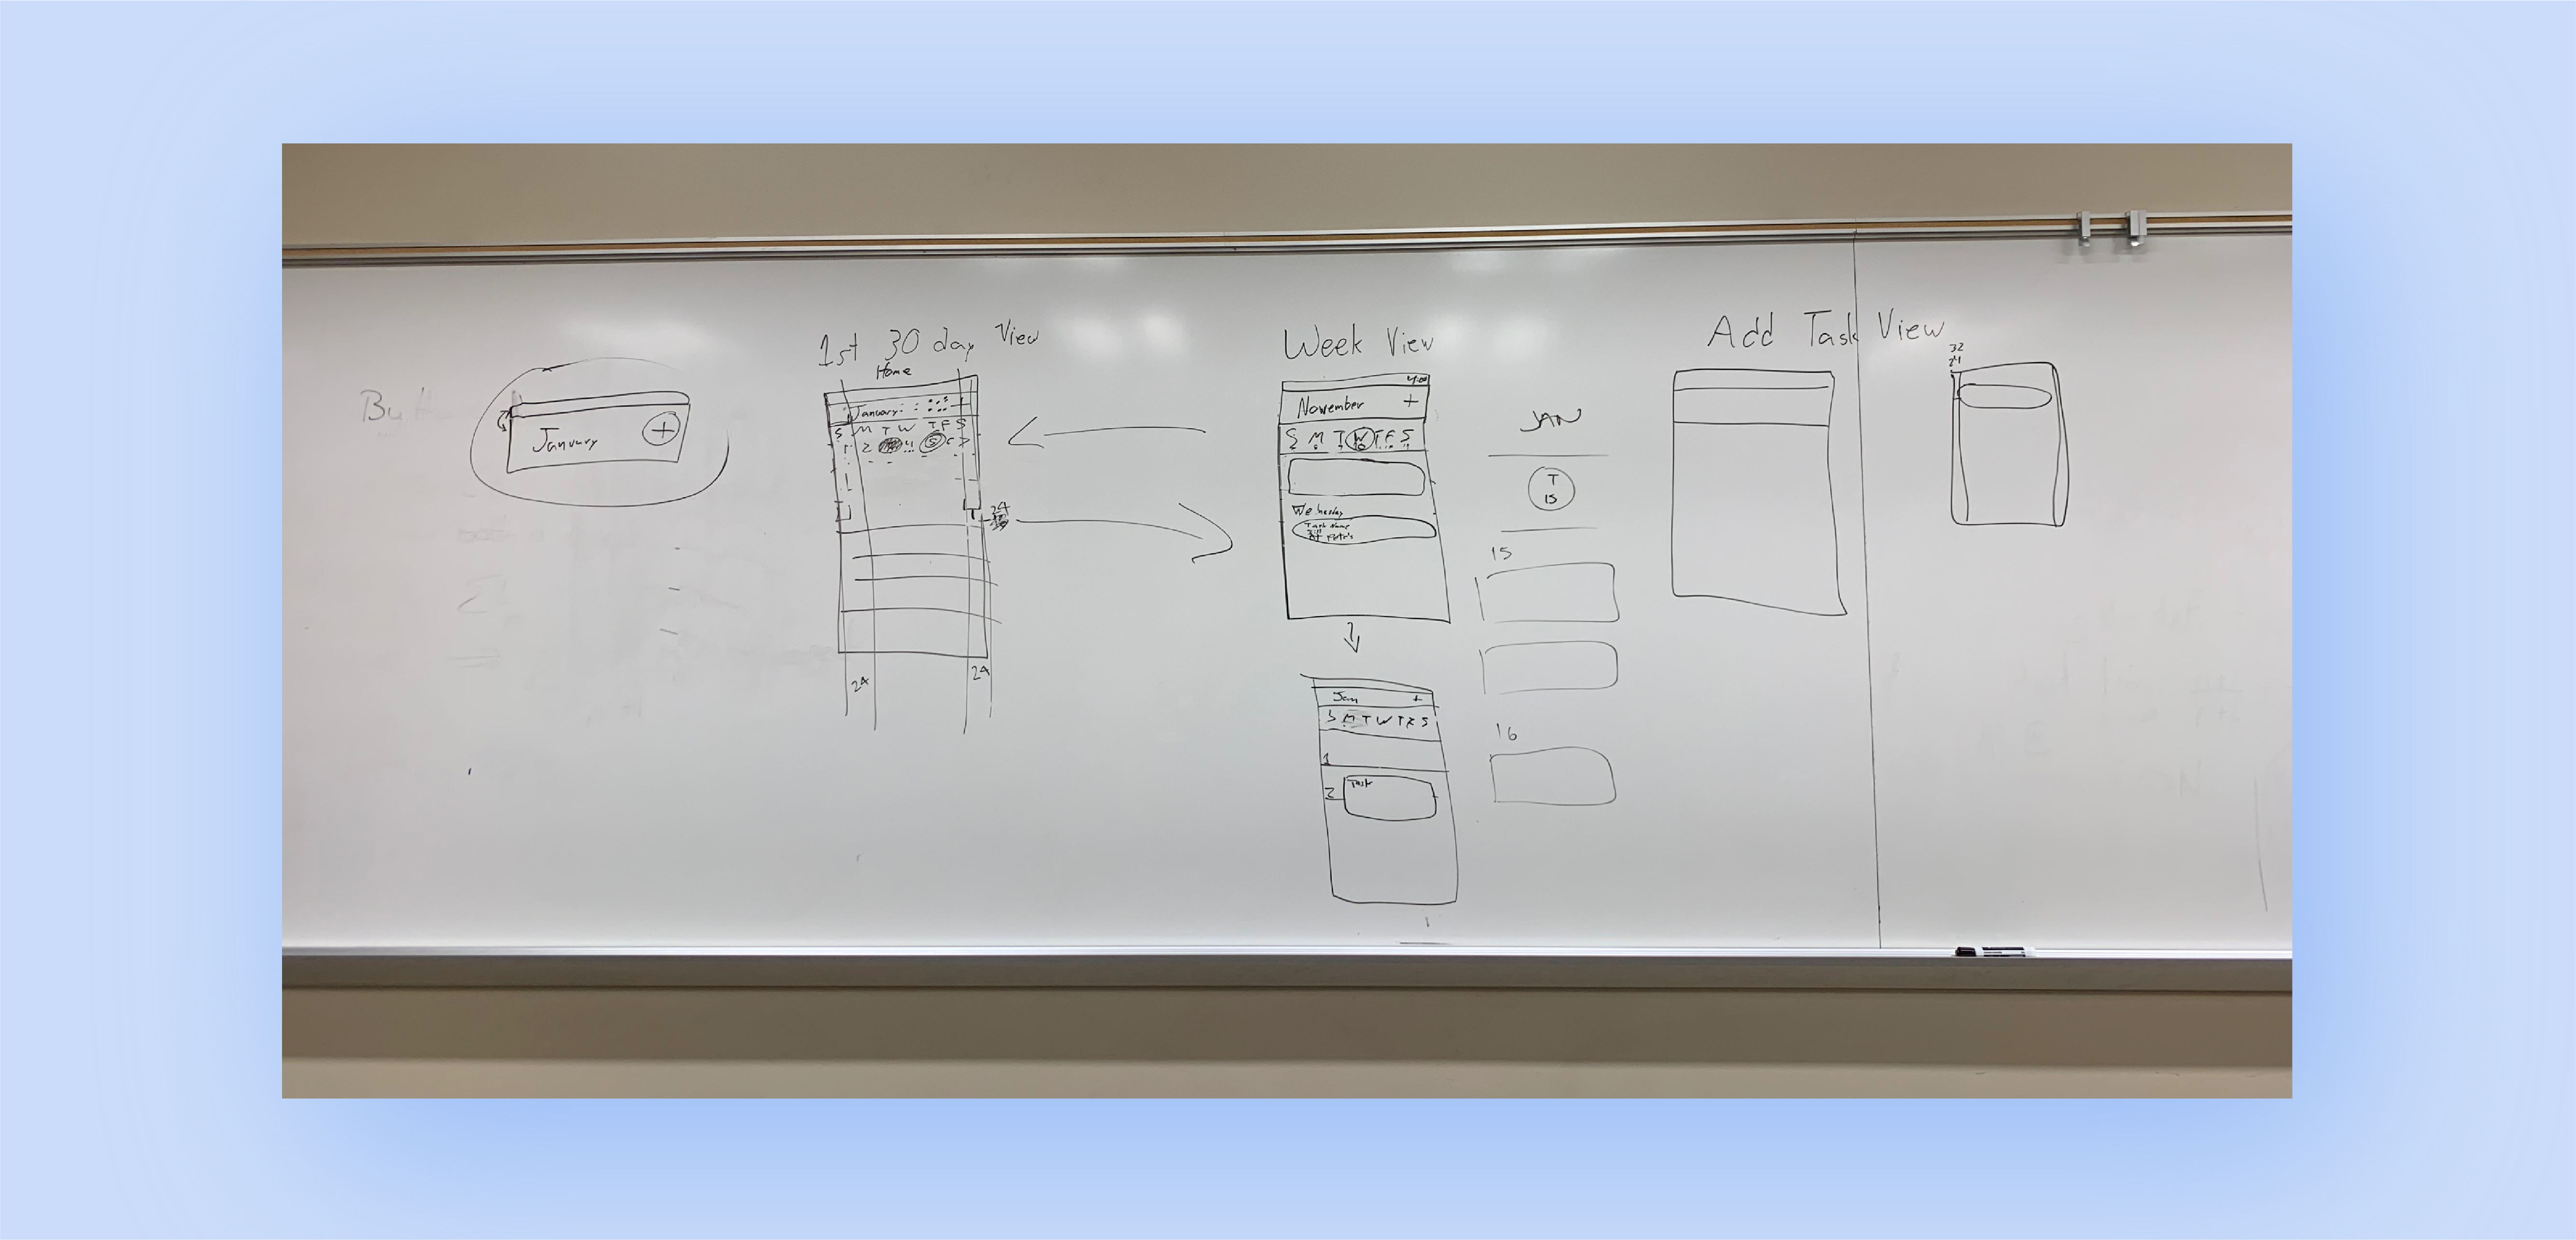 January
+
1st 30 day View
Home
January
S M T W T F S
24
24
24
Week View
4:00
November +
S M T W T F S
Task Name
Jan +
S M T W T F S
1
2 Task
JAN
T
15
15
16
Add Task View
32
24